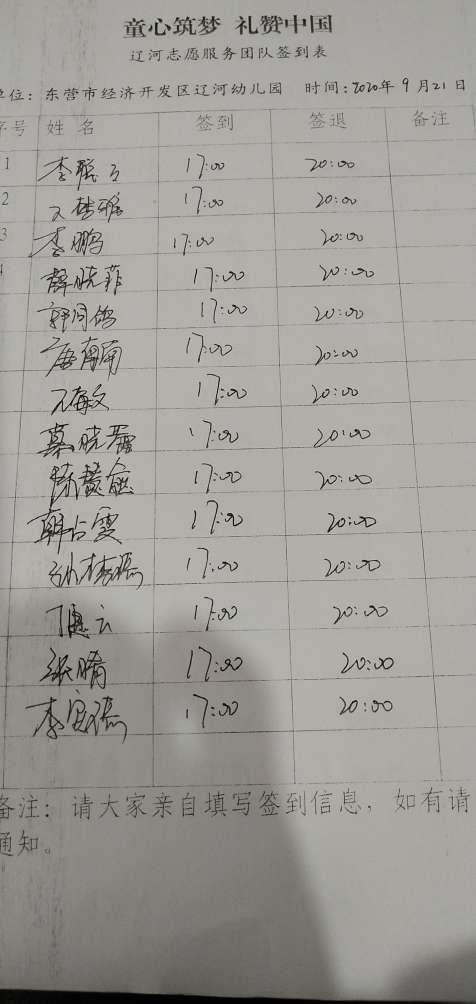 童心筑梦 礼赞中国
辽河志愿服务团队签到表
单位：东营市经济开发区辽河幼儿园 时间：2020年9月21日
序号 姓名 签到 签退 备注
1 李 17:00 20:00
2 17:00 20:00
3 李鹏 17:00 20:00
4 薛晓菲 17:00 20:00
郭同鸽 17:00 20:00
唐南南 17:00 20:00
敏 17:00 20:00
綦晓蕾 17:00 20:00
陈慧 17:00 20:00
韩占雯 17:00 20:00
17:00 20:00
17:00 20:00
张晴 17:00 20:00
李 17:00 20:00
备注：请大家亲自填写签到信息，如有请
通知。